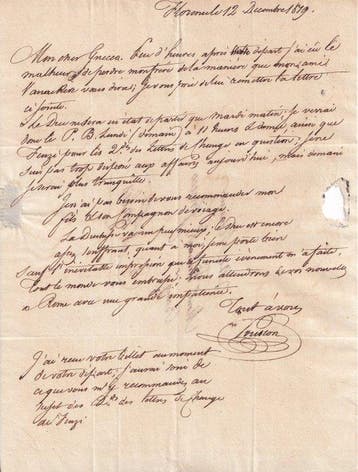 Florence le 12 Decembre 1819.
Mon cher Gnecco. Peu d'heures après votre départ j'ai eu le
malheur de perdre mon frere de la maniere que mon ami
vous dira; je vous prie de lui remettre la lettre
ci jointe.
Le Duc ne sera en état de partir que mardi matin, je verrai
donc le P. B. Lundi (domain) à 11 heures, ainsi que
Fenzi pour les Lettres de Change en question; je ne
suis pas trop disposé aux affaires aujourd'hui, mais demain
je serai plus tranquille.
Je n'ai pas besoin de vous recommander mon
fils et son Compagnon de voyage.
La Duchesse va un peu mieux, le Duc est encore
assez souffrant, quant à moi, je me porte bien
sauf l'inévitable impression que ce funeste évenement m'a faite.
Tout le monde vous embrasse. Nous attendrons de vos nouvelles
à Rome avec une grande impatience.
Tout à vous
Louison
J'ai reçu votre billet au moment
de votre départ; j'aurai soin de
ce que vous m'y recommandez au
sujet des des lettres de Change
de Fenzi